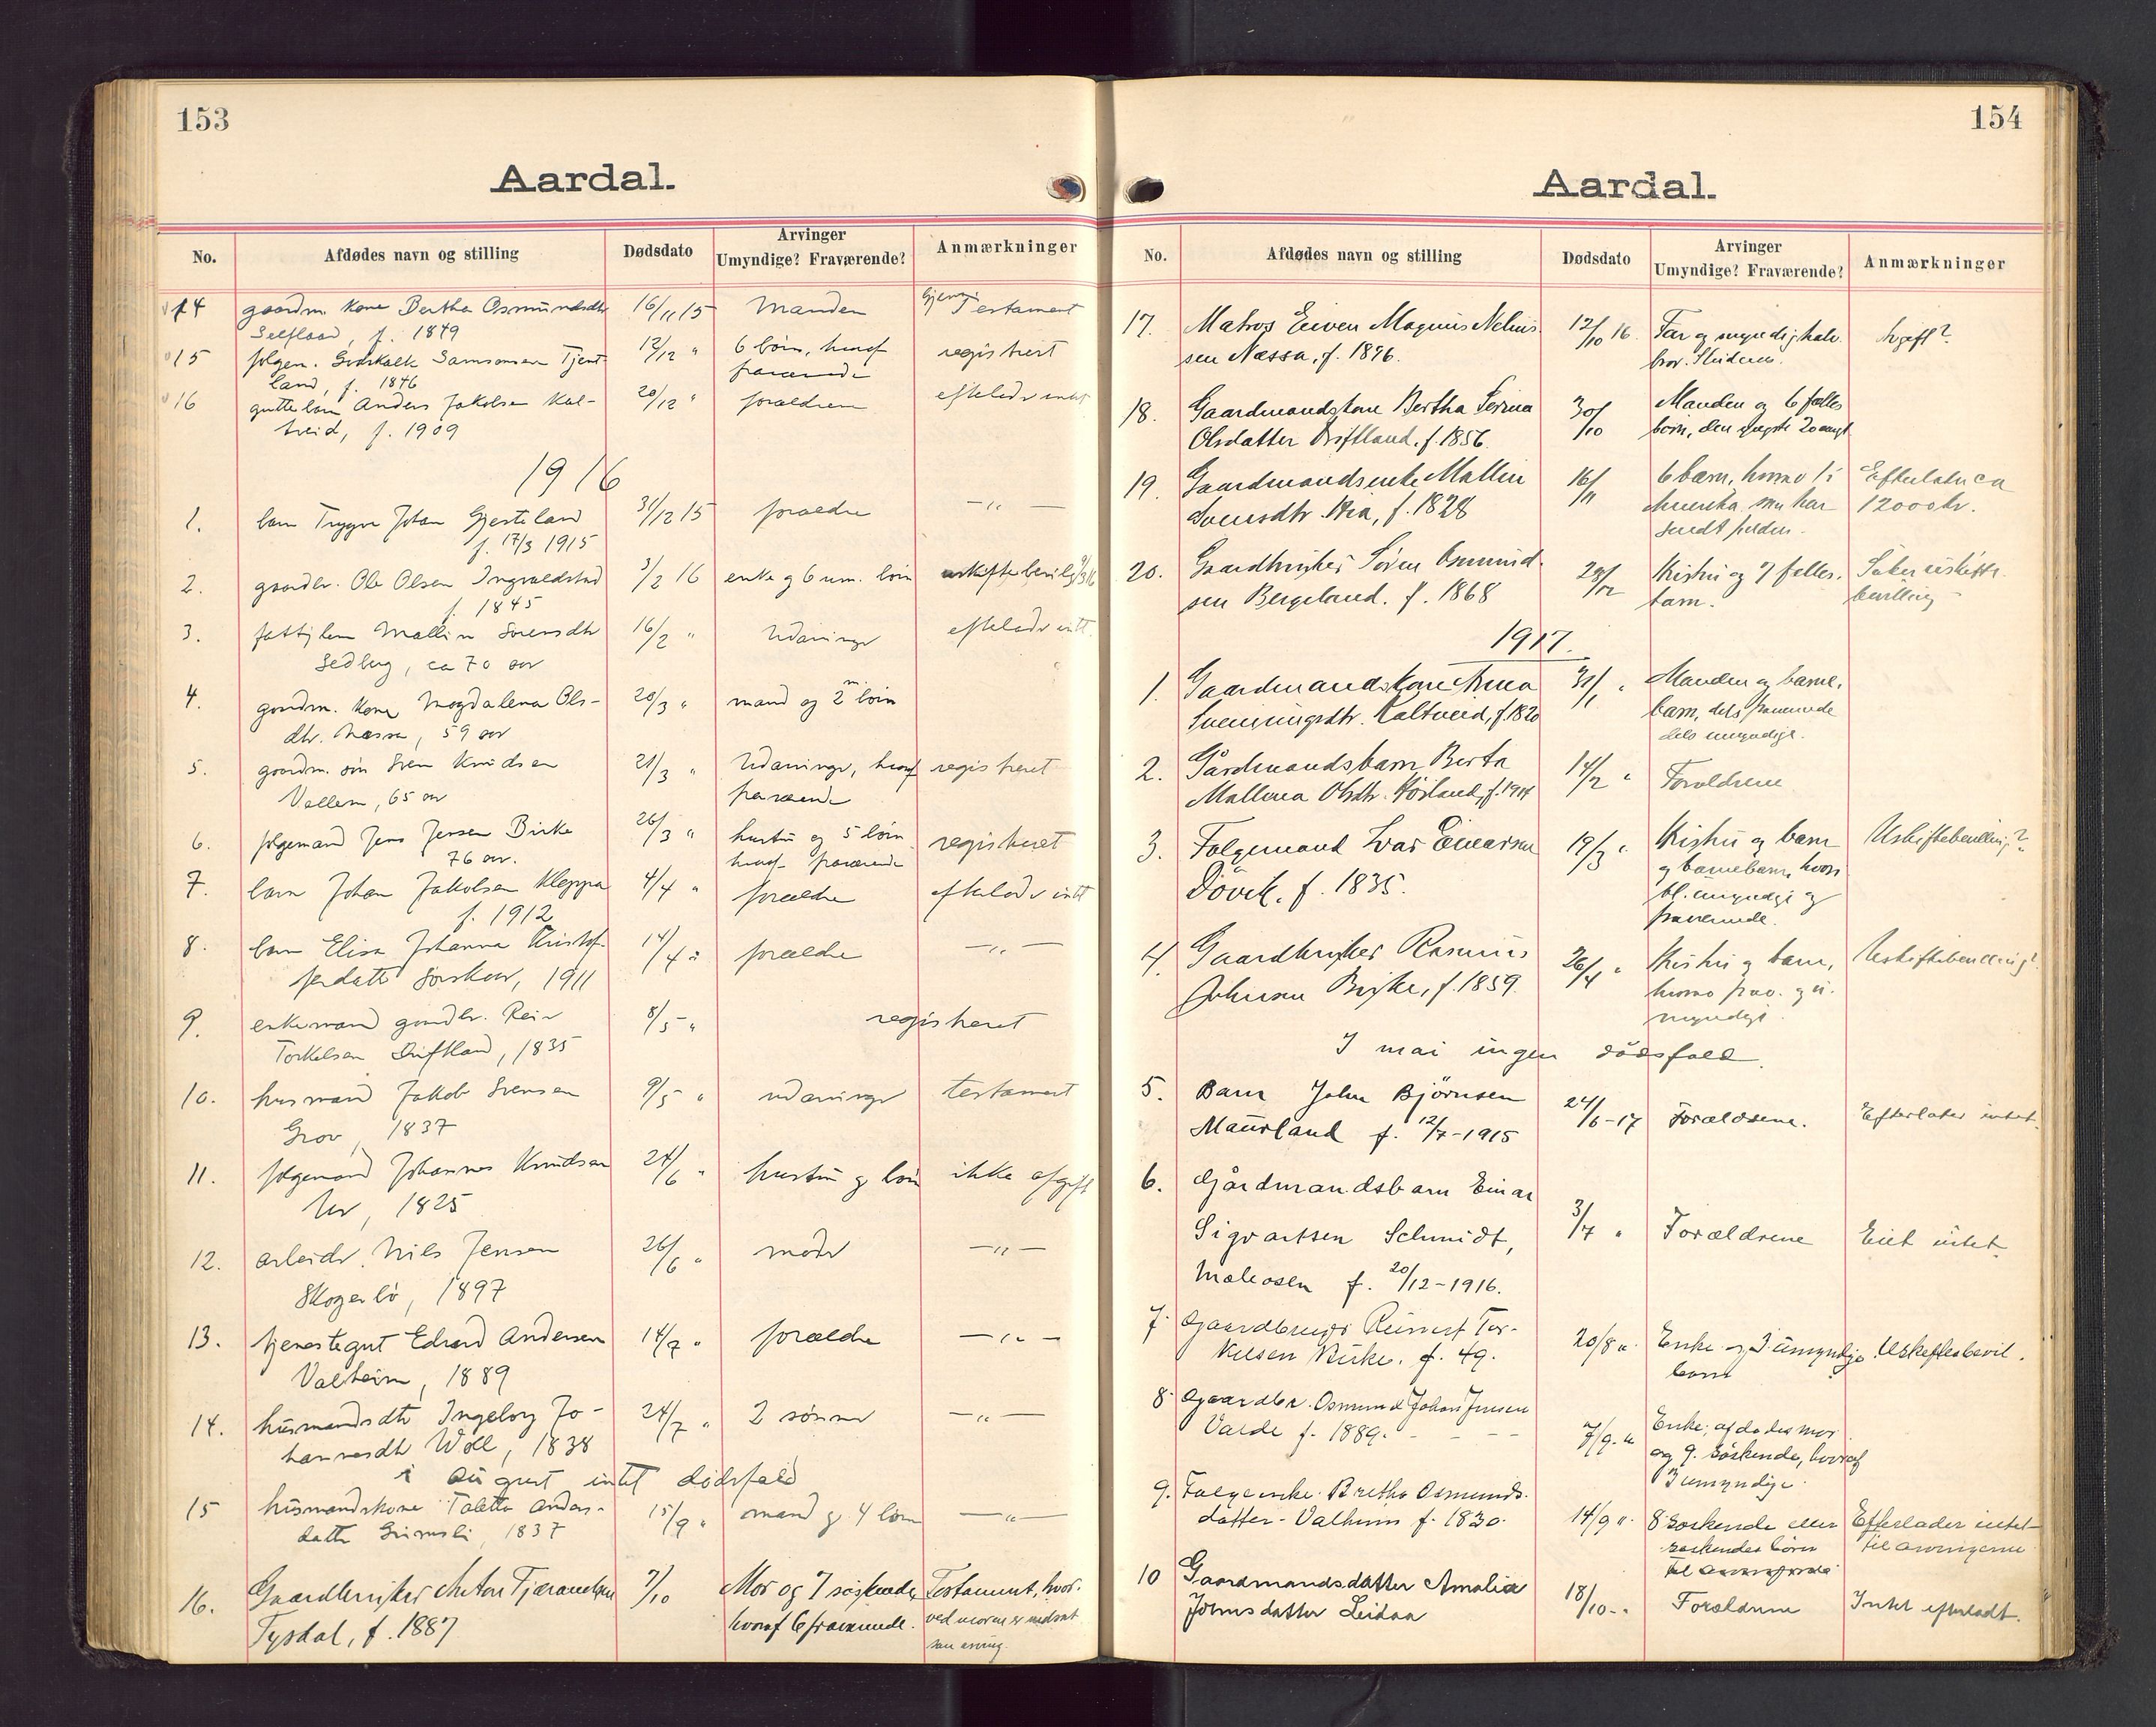 153
Aardal.
No. Afdødes navn og stilling Dødsdato Arvinger Umyndige? Fraværende? Anmærkninger
14 gaardm. kone Bertha Osmundsdtr 16/11 15 Manden Gjens. Testament
Selflaad, f. 1849
15 følgem. Samsonsen Tjent- 12/12 " 6 børn, hvoraf registrert
land, f. 1846 fraværende
16 guttebarn Anders Jakobsen Kal- 20/12 " forældrene efterlader intet
tveid, f. 1909
1916
1. barn Trygve Johan Gjesteland 31/12 15 forældre —"—
f. 17/3 1915
2. gaardbr. Ole Olsen Ingvaldstad 3/2 16 enke og 6 um. børn uskiftebevilg
f. 1845
3. fattiglem Mallin Sørensdtr 16/2 " Udarvinger efterlader intet
Sedberg, ca 70 aar
4. gaardm. kone Magdalena Ols- 20/3 " mand og 2 m. børn
dtr. Næssa, 59 aar
5. gaardm. søn Sven Knudsen 21/3 " Udarvinger, hvoraf registreret
Vallem, 65 aar fraværende
6. følgemand Jens Jensen Birke 26/3 " hustru og 5 børn registreret
76 aar. hvoraf fraværende
7. barn Johan Jakobsen Kleppa 4/4 " forældre efterlader intet
f. 1912
8. barn Elisa Johanna Kristof- 14/4 " forældre —"—
ferdatter Sørskaar, 1911
9. enkemand gaardbr. Reier 8/5 " registreret
Torkelsen Driftland, 1835
10. husmand Jakob Svensen 9/5 " udarvinger testament
Grov, 1837
11. følgemand Johannes Knudsen 24/6 " hustru og børn ikke afgift
1825
12. arbeider Nils Jensen 26/6 " moder —"—
Skogerbø, 1897
13. tjenestegut Edvard Andersen 14/7 " forældre —"—
Valheim, 1889
14. husmandsdtr Ingeborg Jo- 24/7 " 2 sønner —"—
hannesdtr Woll, 1838
i august intet dødsfald
15 husmandskone Taletta Anders- 15/9 " mand og 4 børn —"—
datter Grimsli, 1837
16. Gaardbruker Anton Tjærandsen 7/10 Mor og 7 søskende, Testament, hvor-
Tysdal, f. 1887 hvoraf 6 fraværende. ved moren er indsat
som arving.
154
Aardal.
No. Afdødes navn og stilling Dødsdato Arvinger Umyndige? Fraværende? Anmærkninger
17. Matros Eiven Magnus Nelius- 12/10 16 Far og myndig halv- Avgift?
sen Næssa, f. 1896. bror.
18. Gaardmandskone Bertha Serina 30/10 Manden og 6 fælles
Olsdatter Driftland. f. 1856. børn, den yngste 20 aar
19. Gaardmandsenke Mallin 16/11 6 barn, hvorav 1 i Efterlater ca
Svensdtr. Hia, f. 1828 Amerika, som har 12000 kr.
sendt
20. Gaardbruker Søren Osmund- 28/12 Hustru og 7 fælles- Søker uskifte-
sen Bergeland. f. 1868 barn. bevilling
1917.
1. Gaardmandskone Anna 31/1 " Manden og barne-
Sveinungsdtr. Kaltveid, f. 1820 barn, dels fraværende
dels umyndige.
2. Gårdmandsbarn Berta 14/2 " Forældrene
Mallena Olsdtr. f. 1914
3. Følgemand Ivar Einarsen 19/3 " Hustru og barn Uskiftebevilling?
Døvik. f. 1835. og barnebarn, hvori-
bl. umyndige og
fraværende.
4. Gaardbruker Rasmus 26/4 " Hustru og barn, Uskiftebevilling?
Johnsen Birke, f. 1859. hvorav frav. og u-
myndige.
I mai ingen dødsfald.
5. Barn John Bjørnsen 24/6-17 Forældrene. Efterlater intet.
Maurland f. 12/7-1915
6. Gårdmandsbarn Einar
Sigvartsen Schmidt, 3/7 " Forældrene Eiet intet
Meleosen f. 20/12-1916.
7. Gaardbruger Reinert Tor- 20/8 " Enke og 3 umyndige Uskiftebevil.
kelsen Birke. f. 49. barn
8. Gaardbr. Osmund Johan Jensen
Valde f. 1889. 7/9 " Enke, afdødes mor
og 9 søskende, hvoraf
3 umyndige
9. Følgeenke Bretha Osmunds-
datter Valheim f. 1830. 14/9 " 8 søskende eller Efterlader intet
søskendes børn til arvingerne
10 Gaardmandsdatter Amalia 18/10 " Forældrene Intet efterladt.
Johnsdatter Leidaa